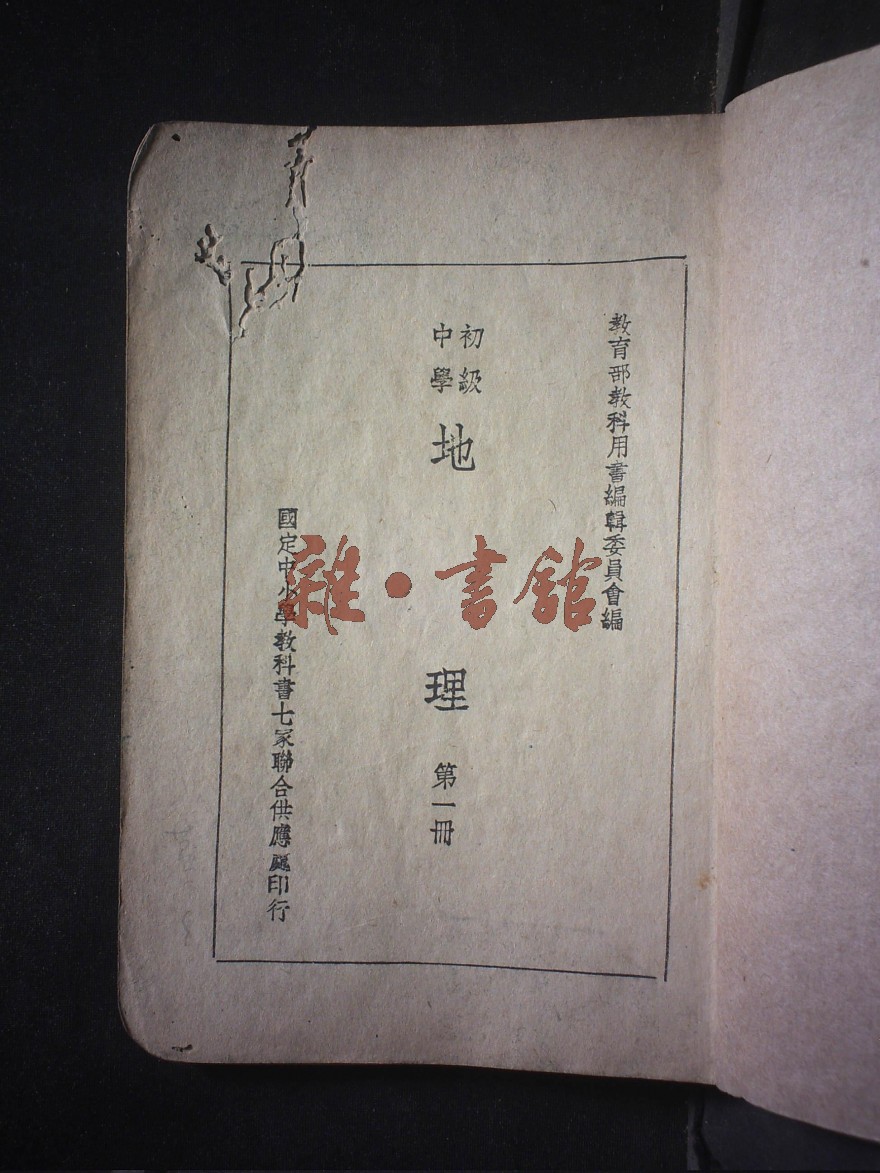 教育部教科用書編輯委員會編
初級
中學
地理 第一冊
國定中小學教科書七家聯合供應處印行
雜·書館